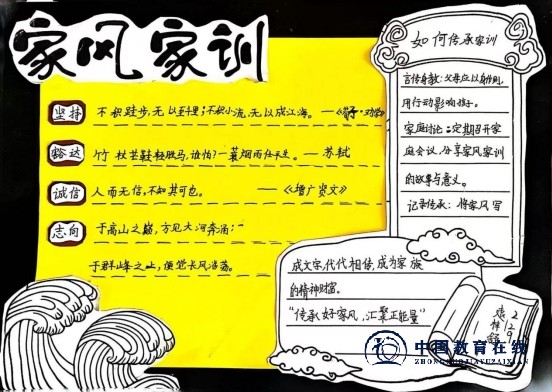 家风家训
坚持
不积跬步,无以至千里;不积小流,无以成江海。——《荀子·劝学》
豁达
竹杖芒鞋轻胜马,谁怕?一蓑烟雨任平生。——苏轼
诚信
人而无信,不知其可也。——《增广贤文》
志向
于高山之巅,方见大河奔涌;
于群峰之上,便觉长风浩荡。
如何传承家训
言传身教:父母应以身作则,
用行动影响孩子。
家庭讨论:定期召开家
庭会议,分享家风家训
的故事与意义。
记录传承:将家风写
成文字,代代相传,成为家族
的精神财富。
“传承好家风,汇聚正能量”
中国教育在线